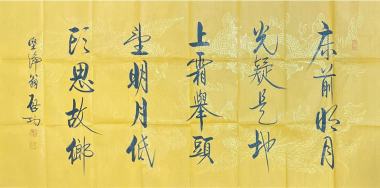 床前明月
光疑是地
上霜舉頭
望明月低
頭思故鄉
坚净翁启功